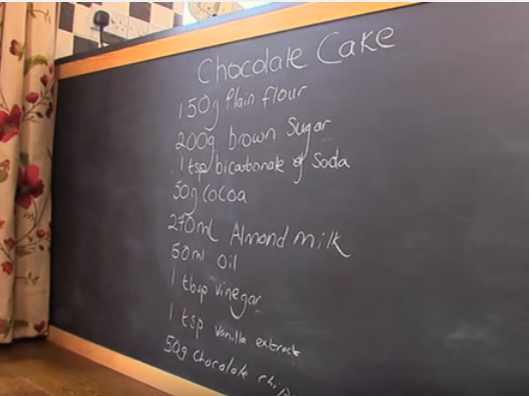 Chocolate Cake
150g Plain flour
200g brown Sugar
1 tsp bicarbonate of Soda
50g Cocoa
270ml Almond milk
50ml Oil
1 tbsp vinegar
1 tsp vanilla extract
50g Chocolate